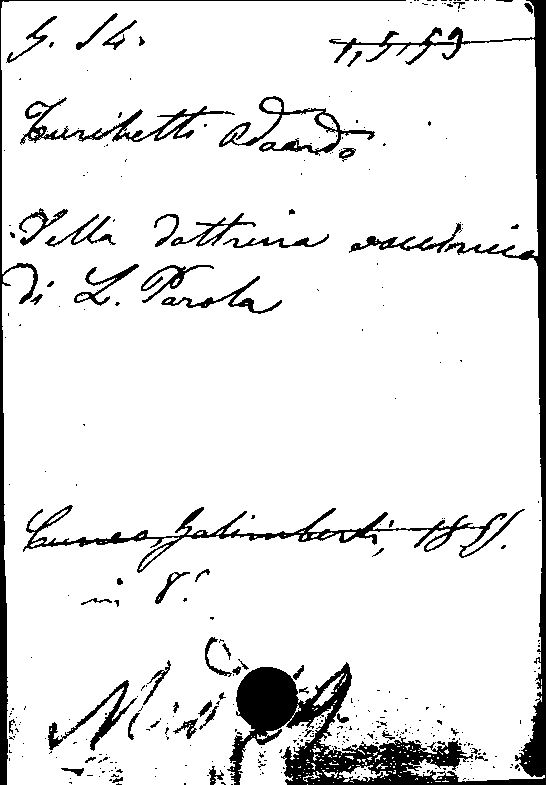 G. 14.
1,5,53
Turchetti Odoardo
Della dottrina vaccinica
di L. Parola
Cuneo, Galimberti, 1851.
in 8.º